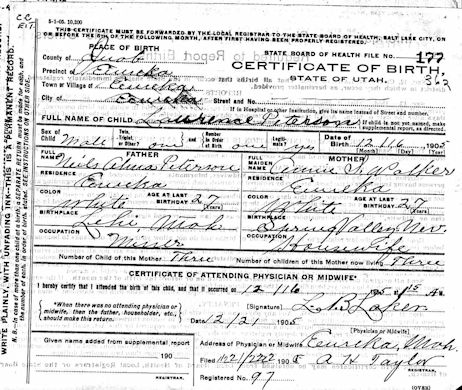 5-1-05. 10,200
THIS CERTIFICATE MUST BE FORWARDED BY THE LOCAL REGISTRAR TO THE STATE BOARD OF HEALTH, SALT LAKE CITY, ON
OR BEFORE THE 5TH OF THE FOLLOWING MONTH, AFTER FIRST HAVING BEEN PROPERLY REGISTERED.
PLACE OF BIRTH
STATE BOARD OF HEALTH FILE No. 177
County of Juab
CERTIFICATE OF BIRTH,
Precinct of Eureka
STATE OF UTAH.
Town or Village of Eureka
City Eureka Street and No.
If in Hospital or other institution, give its name instead of Street and number.
FULL NAME OF CHILD Lawrence Peterson
If child is not yet named, make supplemental report, as directed.
Sex of Child Male
Twin, Triplet or Other? one
and Number in Order of Birth one
Legitimate? yes
Date of Birth 12 16 1905
(Month) (Day) (Year)
FATHER
MOTHER
FULL NAME Neils Peterson
FULL MAIDEN NAME Annie S. Walker
RESIDENCE Eureka
RESIDENCE Eureka
COLOR White AGE AT LAST BIRTHDAY 27 (Years)
COLOR White AGE AT LAST BIRTHDAY 27 (Years)
BIRTHPLACE Lehi
BIRTHPLACE Spring Valley Nev.
OCCUPATION Miner
OCCUPATION Housewife
Number of Child of this Mother Three
Number of children of this Mother now living three
CERTIFICATE OF ATTENDING PHYSICIAN OR MIDWIFE*
I hereby certify that I attended the birth of this child, and that it occurred on 12 16
*When there was no attending physician or
midwife, then the father, householder, etc.,
should make this return.
(Signature)
Date 12/21 1905
(Physician or Midwife)
Given name added from supplemental
report 190
Address of Physician or Midwife Eureka
Filed 1905 A H Taylor
REGISTRAR.
REGISTRAR.
Registered No. 97
(OVER)
WRITE PLAINLY, WITH UNFADING INK—THIS IS A PERMANENT RECORD.